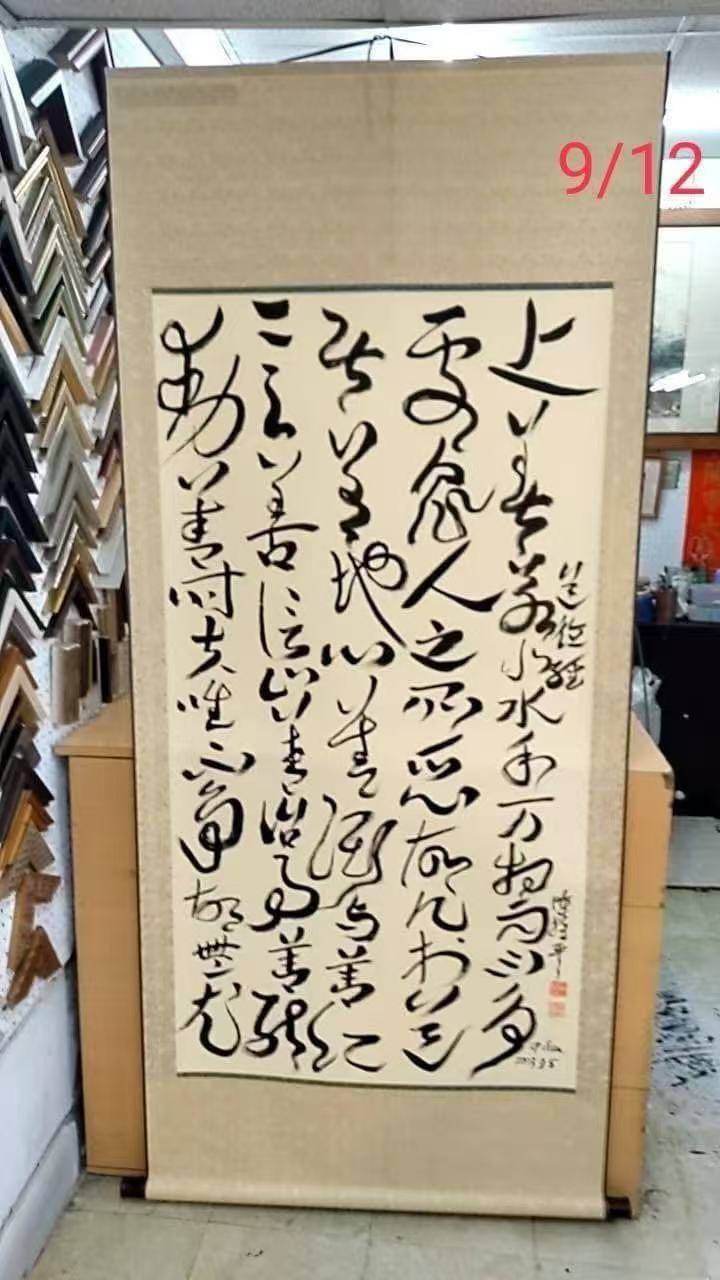 9/12
上善若水水利万物而不争
處众人之所恶故几於道
居善地心善渊与善仁
言善信正善治事善能
動善时夫唯不争故無尤
道德经